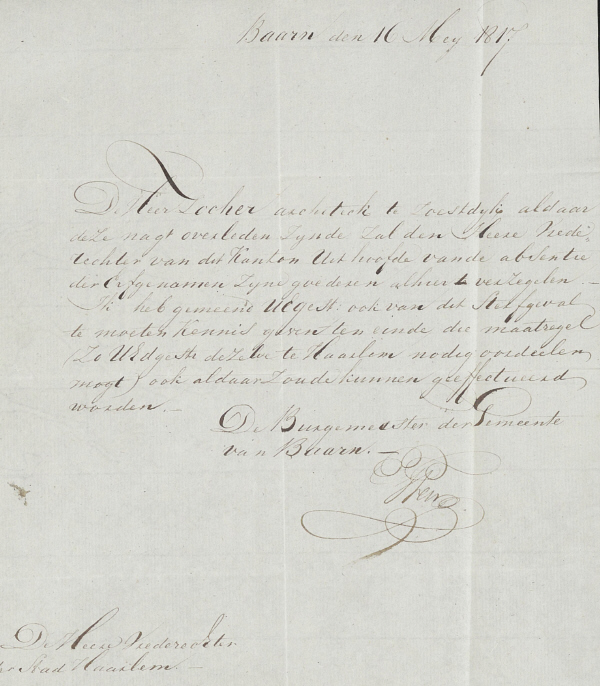 Baarn den 16 Mey 1817
De Heer Zocher architeck te Zoestdyk aldaar
deze nagt overleden zynde zal den Heere Vrede-
rechter van dit Kanton Uit hoofde van de absentie
der Erfgenamen zyne goederen alhier verzegelen. -
Ik heb gemeend UEgest: ook van dit sterfgeval
te moeten kennis geven ten einde die maatregel
(zo UEdgestr: dezelve te Haarlem nodig oordeelen
mogt) ook aldaar zoude kunnen geeffectueerd
worden. -
De Burgemeester der Gemeente
van Baarn. -
De Heere Vrederechter
der Stad Haarlem. -